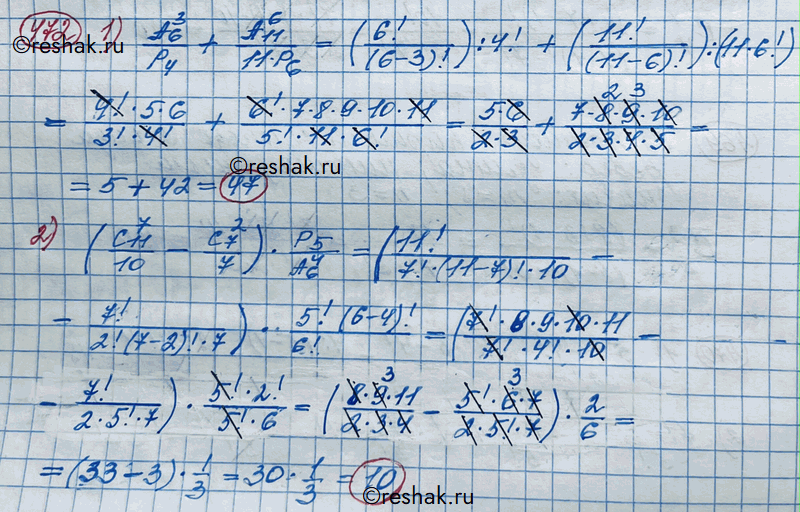 472 1) A₆³/P₄ + A₁₁⁶/(11·P₆) = (6!/(6-3)!) : 4! + (11!/(11-6)!) : (11·6!)
= (4!·5·6)/(3!·4!) + (6!·7·8·9·10·11)/(5!·11·6!) = (5·6)/(2·3) + (7·8·9·10)/(2·3·4·5) =
2 3
= 5 + 42 = 47
©reshak.ru
2) (C₁₁⁷/10 - C₇²/7) · P₅/A₆⁴ = (11!/(7!·(11-7)!·10) -
- 7!/(2!(7-2)!·7)) · (5!(6-4)!)/6! = ((7!·8·9·10·11)/(7!·4!·10) -
- 7!/(2·5!·7)) · (5!·2!)/(5!·6) = ((8·9·11)/(2·3·4) - (5!·6·7)/(2·5!·7)) · 2/6 =
3 3
= (33-3)·1/3 = 30·1/3 = 10
©reshak.ru